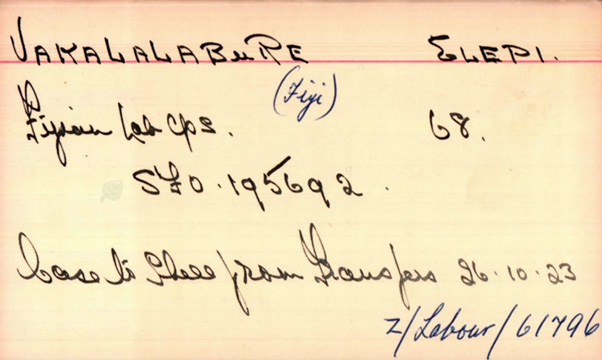 VAKALALABURE ELEPI.
(Fiji)
Fijian Lab Cps. 68.
SFO. 195692.
Case to from Transfers 26.10.23
Z/Labour/61796